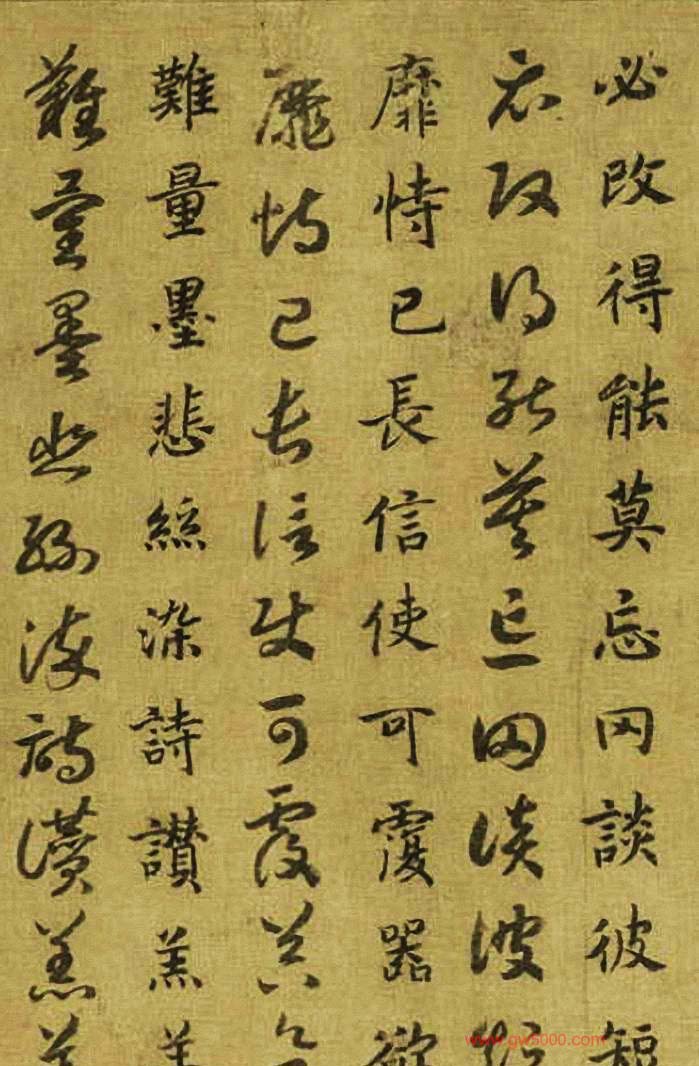 必改得能莫忘罔談彼短
必改得能莫忘罔談彼短
靡恃己長信使可覆器欲
靡恃己長信使可覆器欲
難量墨悲絲染詩讚羔羊
難量墨悲絲染詩讚羔羊
www.gw5000.com